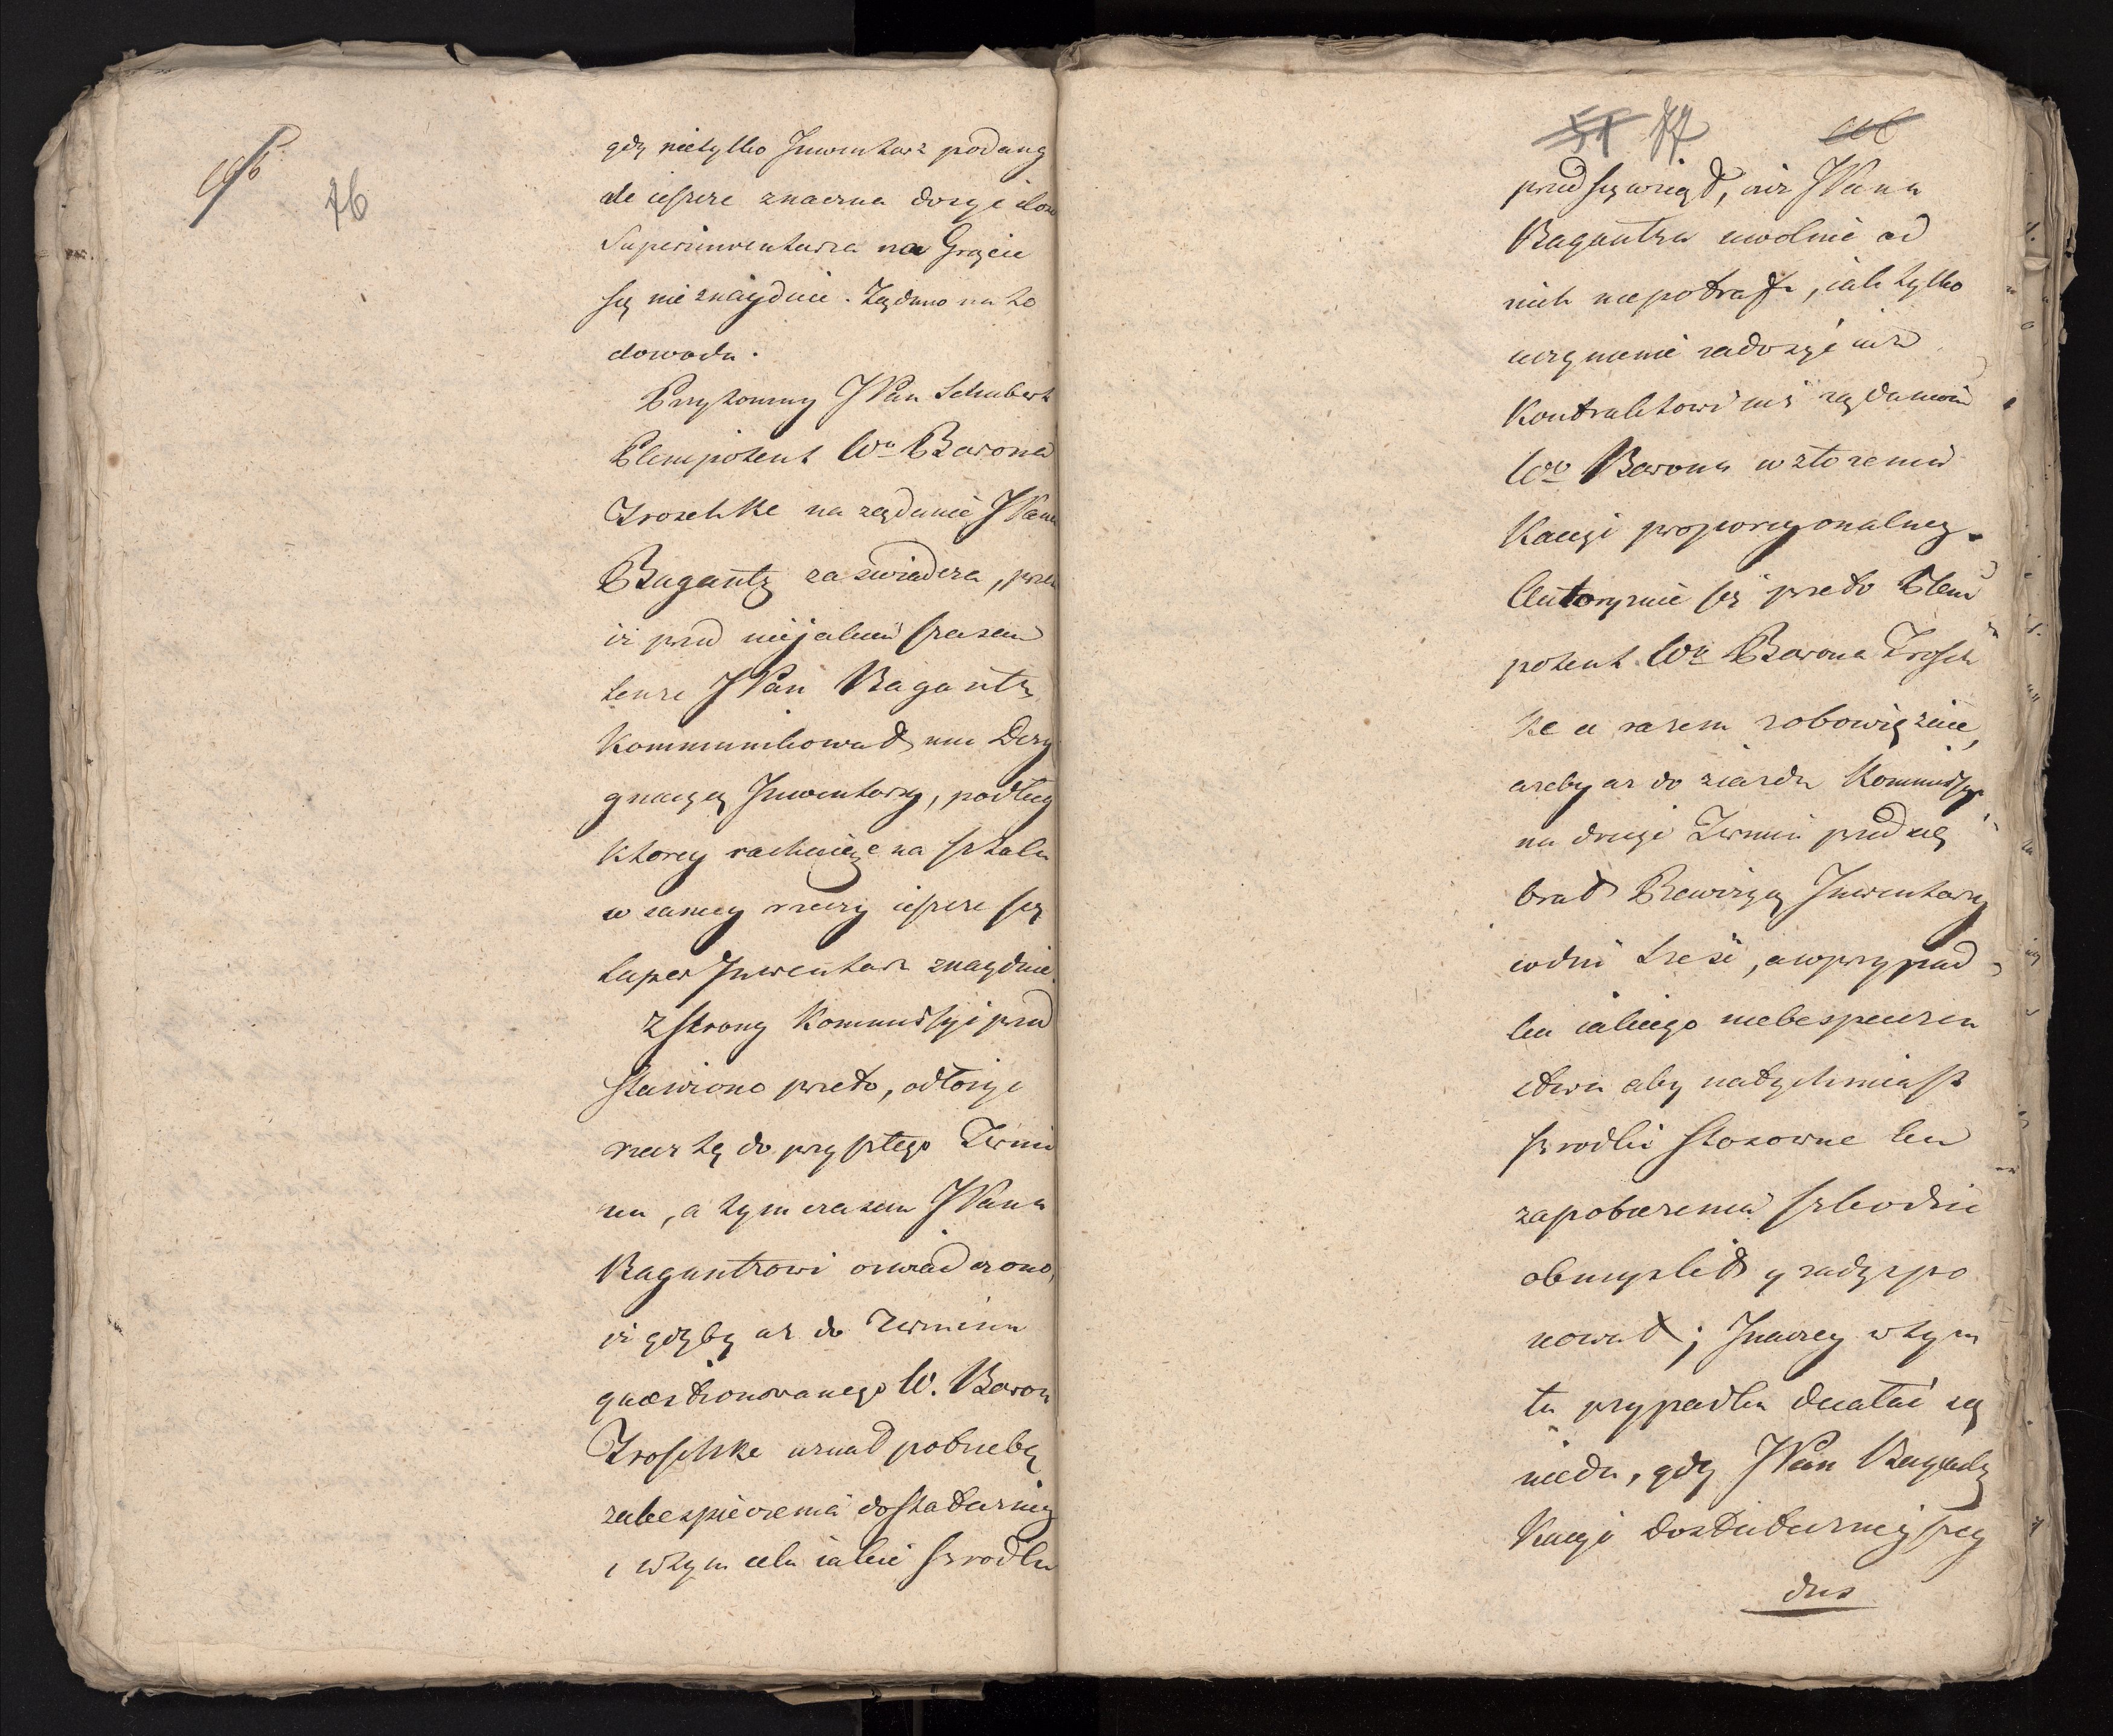 76
gdy nietylko Inwentarz podany
ale ieszcze znaczna dosyć ilosc
Superinwentarza na Grącie
się nie znayduie. Żądano na to
dowodu.
Przytomny JPan Schubert
Plenipotent Wo Barona
Troschke na żądanie JPana
Bagantz zaswiadcza,
iż przed nieiakim czasem
tenze JPan Bagantz
kommunikował mu Desy
gnacyą Inwentarzy, podług
ktorey rachuiąc na sztuki
w samey rzeczy ieszcze się
super Inwentarz znayduie.
Z strony Kommissyi przed
stawiono przeto, odłożyć
rzecz tę do przyszłego Termi
nu, a tym czasem JPanu
Bagantzowi oswiadczono,
iż gdyby az do Terminu
quaestionowanego W. Baron
Troschke uznał potrzebę
zabezpieczenia dostateczniey
i w tym celu iakie szrodki
77
przedsięwziął, niż JPana
Bagantza uwolnić od
nich niepotrafi, iak tylko
uczynienie zadosyć iuż
Kontraktowi iuż żądaniu
Wo Barona w złożeniu
Kaucyi proporcyonalney.
Autoryzuie się przeto Pleni
potent Wo Barona Trosch
ke a razem zobowiązuie,
azeby az do ziazdu Kommissyi
na drugi Termin przedsię
brał Rewizyą Inwentarzy
co dni trzi, a w przypad
ku iakiego niebespieczeń
stwa aby natychmiast
szrodki stosowne ku
zapobieżeniu szkodzie
obmyslił y zadyspo
nował; Inaczey w tym
tu przypadku działać się
nieda, gdy JPan Bagantz
Kaucyi dostateczniejszey
dns